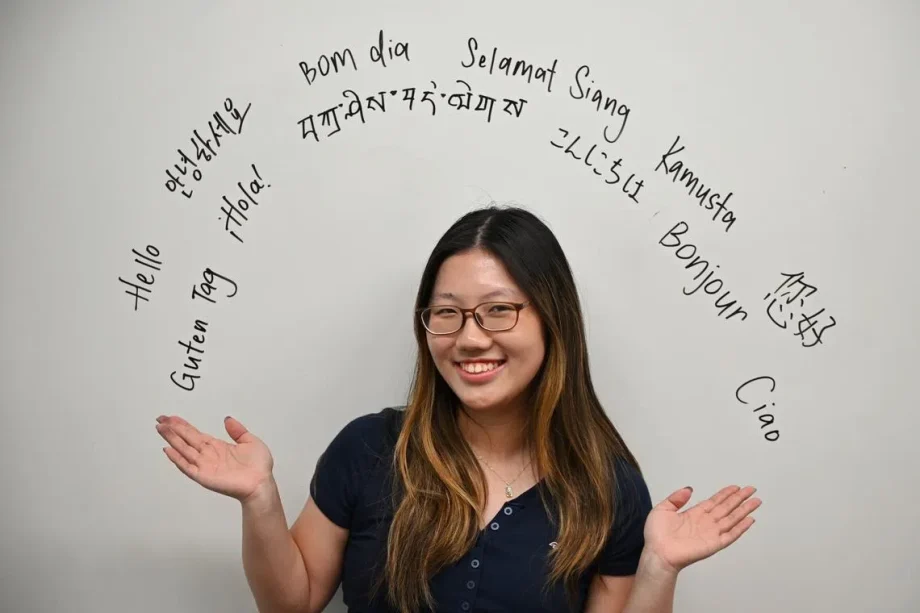 Hello
Guten Tag
안녕하세요
¡Hola!
Bom dia
བཀྲ་ཤིས་བདེ་ལེགས
Selamat Siang
こんにちは
Kamusta
Bonjour
您好
Ciao